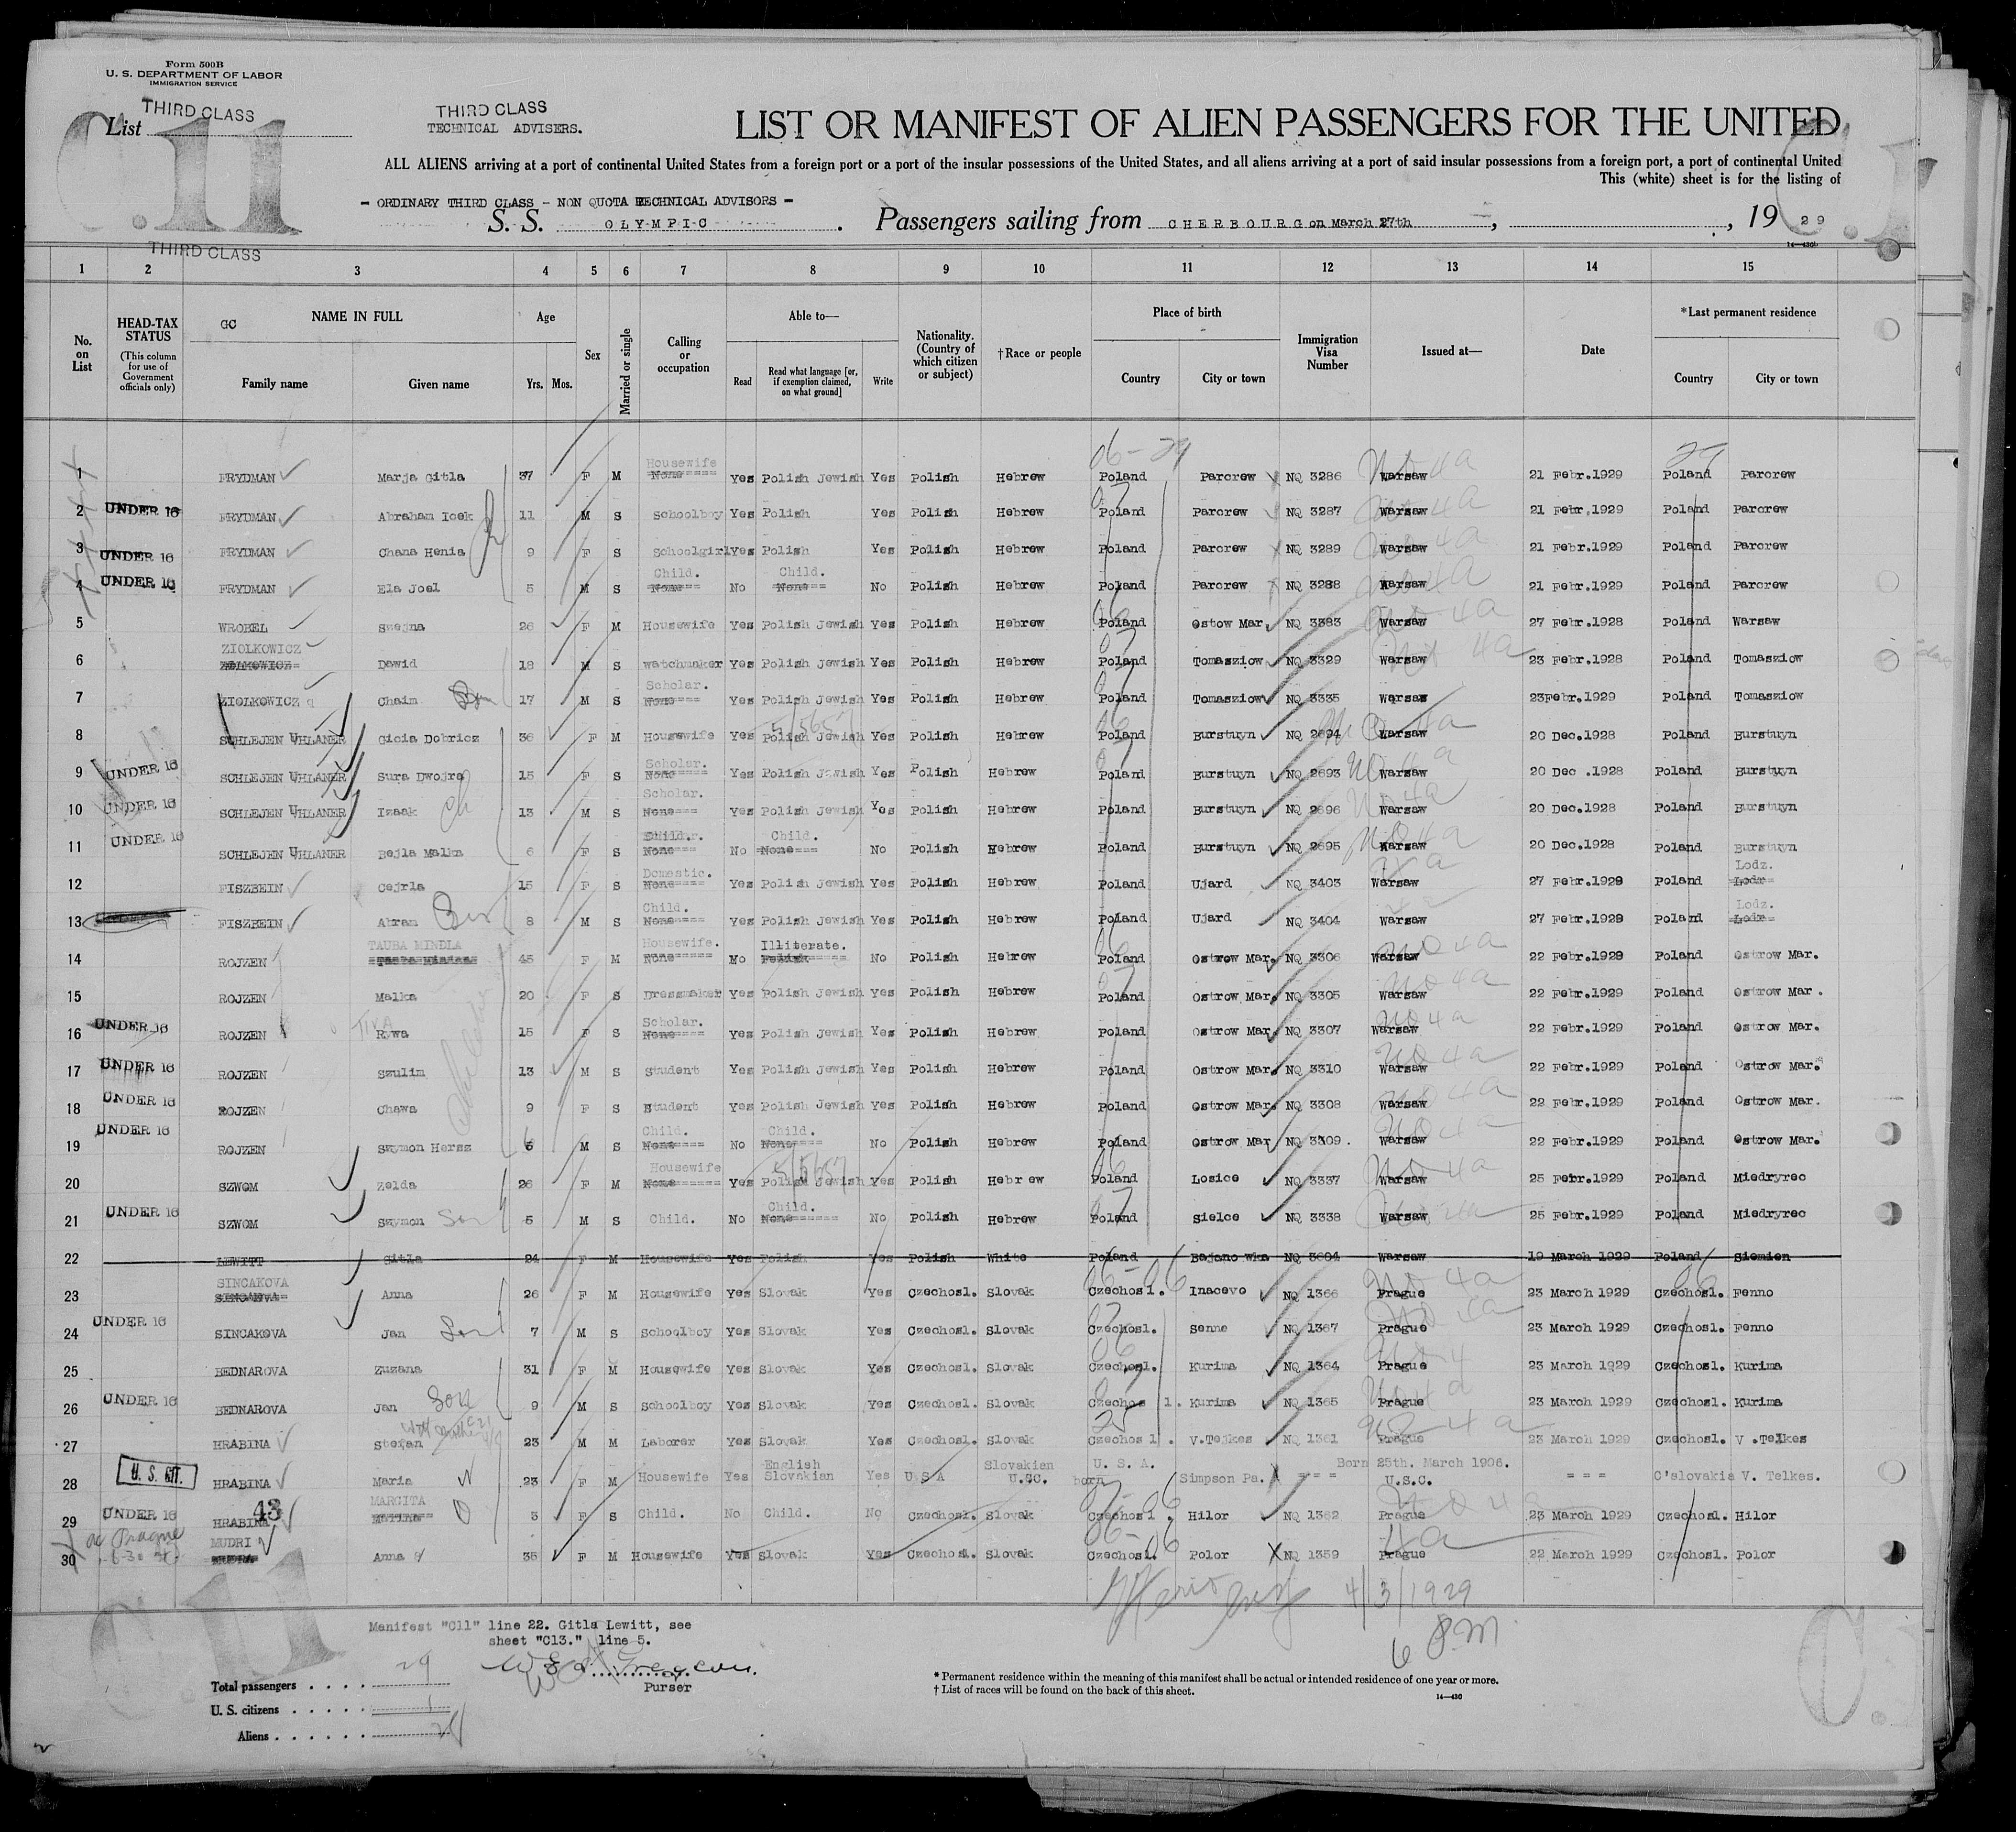 Form 500B
U. S. DEPARTMENT OF LABOR
IMMIGRATION SERVICE
THIRD CLASS
List
C.11
THIRD CLASS
TECHNICAL ADVISERS.
LIST OR MANIFEST OF ALIEN PASSENGERS FOR THE UNITED
ALL ALIENS arriving at a port of continental United States from a foreign port or a port of the insular possessions of the United States, and all aliens arriving at a port of said insular possessions from a foreign port, a port of continental United
This (white) sheet is for the listing of
- ORDINARY THIRD CLASS - NON QUOTA TECHNICAL ADVISORS -
S. S. OLYMPIC. Passengers sailing from CHERBOURG on March 27th, , 19 29
14—430
THIRD CLASS
1 2 3 4 5 6 7 8 9 10 11 12 13 14 15
No. on List
HEAD-TAX STATUS
(This column for use of Government officials only)
GC NAME IN FULL
Family name Given name
Age
Yrs. Mos.
Sex
Married or single
Calling or occupation
Able to—
Read
Read what language [or, if exemption claimed, on what ground]
Write
Nationality. (Country of which citizen or subject)
†Race or people
Place of birth
Country City or town
Immigration Visa Number
Issued at—
Date
*Last permanent residence
Country City or town
06-29 29
1 FRYDMAN Marja Gitla 37 F M Housewife None Yes Polish Jewish Yes Polish Hebrew Poland Parcrew NQ 3286 Warsaw 21 Febr.1929 Poland Parcrew
2 UNDER 16 FRYDMAN Abraham Icek 11 M S Schoolboy Yes Polish Yes Polish Hebrew Poland Parcrew NQ 3287 Warsaw 21 Febr.1929 Poland Parcrew
3 UNDER 16 FRYDMAN Chana Henia 9 F S Schoolgirl Yes Polish Yes Polish Hebrew Poland Parcrew NQ 3289 Warsaw 21 Febr.1929 Poland Parcrew
4 UNDER 16 FRYDMAN Ela Joel 5 M S Child. None No Child. None No Polish Hebrew Poland Parcrew NQ 3288 Warsaw 21 Febr.1929 Poland Parcrew
5 WROBEL Szejna 26 F M Housewife Yes Polish Jewish Yes Polish Hebrew Poland Ostow Mar. NQ 3383 Warsaw 27 Febr.1928 Poland Warsaw
6 ZIOLKOWICZ Dawid 18 M S watchmaker Yes Polish Jewish Yes Polish Hebrew Poland Tomasziow NQ 3329 Warsaw 23 Febr.1928 Poland Tomasziow
7 ZIOLKOWICZ Chaim 17 M S Scholar. None Yes Polish Jewish Yes Polish Hebrew Poland Tomasziow NQ 3335 Warsaw 23Febr.1929 Poland Tomasziow
8 SCHLEJEN UHLANER Gicia Dobricz 36 F M Housewife Yes Polish Jewish Yes Polish Hebrew Poland Burstuyn NQ 2694 Warsaw 20 Dec.1928 Poland Burstuyn
9 UNDER 16 SCHLEJEN UHLANER Sura Dwojra 15 F S Scholar. None Yes Polish Jewish Yes Polish Hebrew Poland Burstuyn NQ 2693 Warsaw 20 Dec .1928 Poland Burstuyn
10 UNDER 16 SCHLEJEN UHLANER Izaak 13 M S Scholar. None Yes Polish Jewish Yes Polish Hebrew Poland Burstuyn NQ 2696 Warsaw 20 Dec.1928 Poland Burstuyn
11 UNDER 16 SCHLEJEN UHLANER Bejla Malka 6 F S Child. None No Child. None No Polish Hebrew Poland Burstuyn NQ 2695 Warsaw 20 Dec.1928 Poland Burstuyn
12 FISZBEIN Cejrla 15 F S Domestic. None Yes Polish Jewish Yes Polish Hebrew Poland Ujard NQ 3403 Warsaw 27 Febr.1929 Poland Lodz. Lodz
13 FISZBEIN Abram 8 M S Child. None Yes Polish Jewish Yes Polish Hebrew Poland Ujard NQ 3404 Warsaw 27 Febr.1929 Poland Lodz. Lodz
14 ROJZEN TAUBA MINDLA 45 F M Housewife. None No Illiterate. Polish No Polish Hebrew Poland Ostrow Mar. NQ 3306 Warsaw 22 Febr.1929 Poland Ostrow Mar.
15 ROJZEN Malka 20 F S Dressmaker Yes Polish Jewish Yes Polish Hebrew Poland Ostrow Mar. NQ 3305 Warsaw 22 Febr.1929 Poland Ostrow Mar.
16 UNDER 16 ROJZEN Rywa 15 F S Scholar. None Yes Polish Jewish Yes Polish Hebrew Poland Ostrow Mar. NQ 3307 Warsaw 22 Febr.1929 Poland Ostrow Mar.
17 UNDER 16 ROJZEN Szulim 13 M S Student Yes Polish Jewish Yes Polish Hebrew Poland Ostrow Mar. NQ 3310 Warsaw 22 Febr.1929 Poland Ostrow Mar.
18 UNDER 16 ROJZEN Chawa 9 F S Student Yes Polish Jewish Yes Polish Hebrew Poland Ostrow Mar. NQ 3308 Warsaw 22 Febr.1929 Poland Ostrow Mar.
19 UNDER 16 ROJZEN Szymon Hersz 5 M S Child. None No Child. None No Polish Hebrew Poland Ostrow Mar NQ 3309. Warsaw 22 Febr.1929 Poland Ostrow Mar.
20 SZWOM Zelda 26 F M Housewife None Yes Polish Jewish Yes Polish Hebrew Poland Losice NQ 3337 Warsaw 25 Febr.1929 Poland Miedryrec
21 UNDER 16 SZWOM Szymon Son 5 M S Child. No Child. None No Polish Hebrew Poland Sielce NQ 3338 Warsaw 25 Febr.1929 Poland Miedryrec
22 LEWITT Gitla 24 F M Housewife Yes Polish Yes Polish White Poland Bajano wka NQ 3604 Warsaw 19 March 1929 Poland Siemien
23 SINCAKOVA Anna 26 F M Housewife Yes Slovak Yes Czechosl. Slovak Czechosl. Inacevo NQ 1366 Prague 23 March 1929 Czechosl. Fenno
24 UNDER 16 SINCAKOVA Jan Son 7 M S Schoolboy Yes Slovak Yes Czechosl. Slovak Czechosl. Senne NQ 1367 Prague 23 March 1929 Czechosl. Fenno
25 BEDNAROVA Zuzana 31 F M Housewife Yes Slovak Yes Czechosl. Slovak Czechosl. Kurima NQ 1364 Prague 23 March 1929 Czechosl. Kurima
26 UNDER 16 BEDNAROVA Jan Son 9 M S Schoolboy Yes Slovak Yes Czechosl. Slovak Czechos l. Kurima NQ 1365 Prague 23 March 1929 Czechosl. Kurima
27 HRABINA Stefan 23 M M Laborer Yes Slovak Yes Czechosl. Slovak Czechosl. V.Tejkes NQ 1361 Prague 23 March 1929 Czechosl. V .Telkes
28 U. S. CIT. HRABINA Maria 23 F M Housewife Yes English Slovakian Yes U S A Slovakien U.SC. U. S. A. born Simpson Pa. === Born 25th. March 1906. U.S.C. === C'slovakia V. Telkes.
29 UNDER 16 HRABINA 43 MARGITA 3 F S Child. No Child. No Czechosl. Slovak Czechosl. Hilor NQ 1362 Prague 23 March 1929 Czechosl. Hilor
30 MUDRI Anna 35 F M Housewife Yes Slovak Yes Czechosl. Slovak Czechosl. Polor NQ 1359 Prague 22 March 1929 Czechosl. Polor
4/3/1929
6 PM
C11
Manifest "C11" line 22. Gitla Lewitt, see
sheet "C13." line 5.
Purser
Total passengers . . . . 29
U. S. citizens . . . . . 1
Aliens . . . . . . 28
* Permanent residence within the meaning of this manifest shall be actual or intended residence of one year or more.
† List of races will be found on the back of this sheet.
14—430